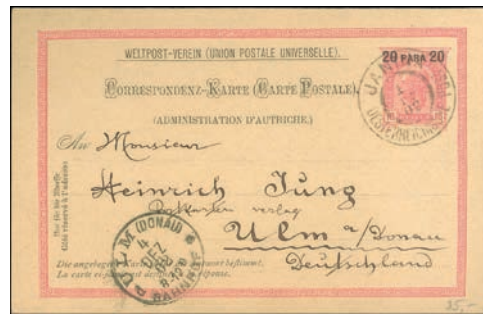 WELTPOST-VEREIN (UNION POSTALE UNIVERSELLE).
20 PARA 20
CORRESPONDENZ-KARTE (CARTE POSTALE)
(ADMINISTRATION D'AUTRICHE.)
An Monsieur
Heinrich Jung
verlag
Ulm a/Donau
Deutschland
Nur für die Adresse
Côté réservé à l'adresse
ULM (DONAU)
4
DEZ
BAHNHOF
Die angebogene Karte ist für die Antwort bestimmt.
La carte ci-jointe est destinée à la réponse.
25,-